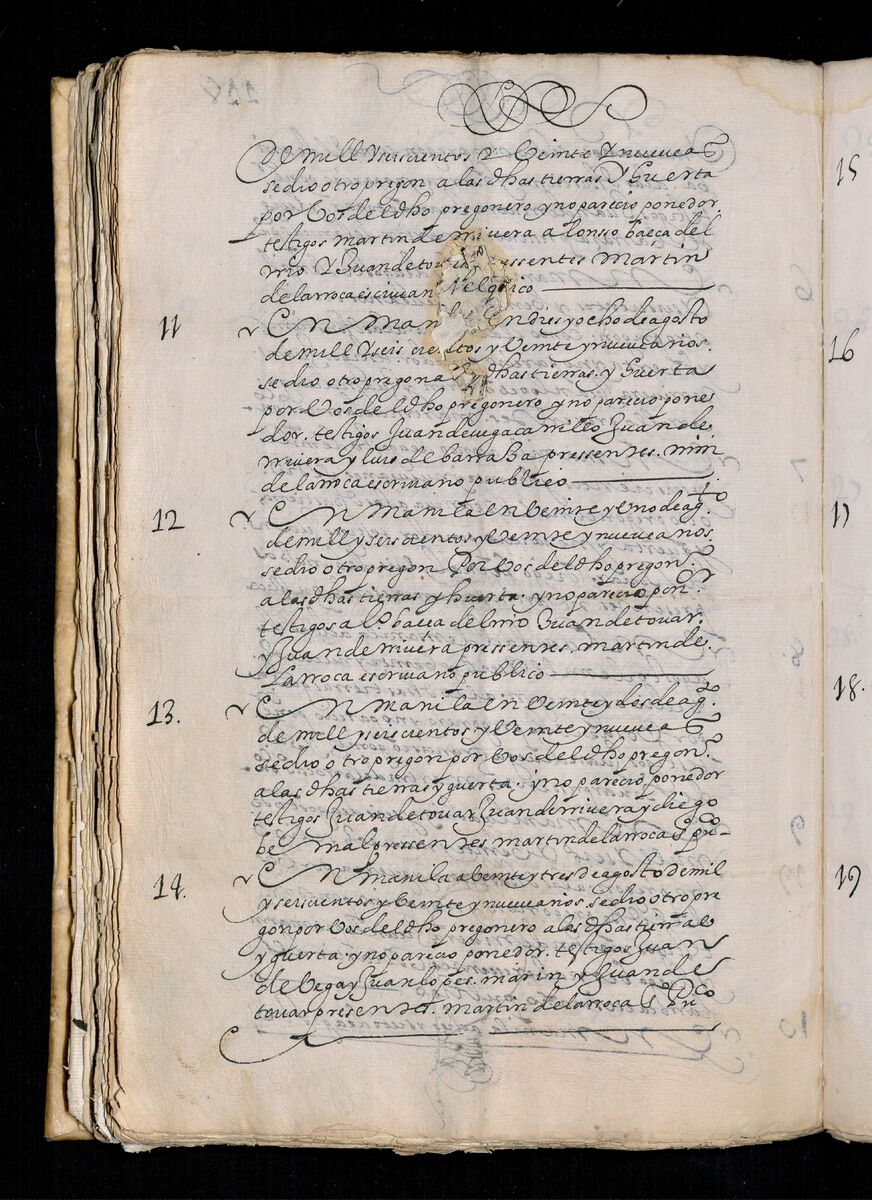 de mill y seiscientos y Veinte y nueve as
se dio otro pregon a las dhas tierras y huerta
por Vos del dho pregonero y no parecio ponedor
testigos martin de rrivera alonsso baeça del
rrio y Juan de tovar pressentes martin
de larroca escrivano publico
11 En Manila En dies y ocho de agosto
de mill y seis cientos y Veinte y nueve años.
se dio otro pregon a dhas tierras. y huerta
por Vos del dho pregonero y no parecio pone
dor. testigos Juan de vega carrillo Juan de
rrivera y luis de barrassa pressentes. mrn
de larroca escrivano publico
12 En Manila en Veinte y Uno de agto
de mill y seiscientos y Veinte y nueve años.
se dio otro pregon Por Vos del dho pregono
a las dhas tierras y huerta. y no parecio ponor
testigos alo. baeça del rrio Juan de tovar.
y Juan de rrivera pressentes. martin de
Larroca escrivano publico
13. En manila en Veinte y dos de ago
de mill y seiscientos y Veinte y nueve as
se dio otro pregon por Vos del dho pregono
a las dhas tierras y guerta. y no parecio ponedor
testigos Juan de tovar Juan de rrivera y diego
bernal pressentes martin de larroca so puco
14. En manila a Veinte y tres de agosto de mil
y seiscientos y Veinte y nueve años. se dio otro pre
gon por Vos del dho pregonero a las dhas tierras
y guerta. y no parecio ponedor. testigos Juan
de Vega y Juan lopes. marin y Juan de
tovar presentes. martin de larroca so Puco
15
16
17
18.
19